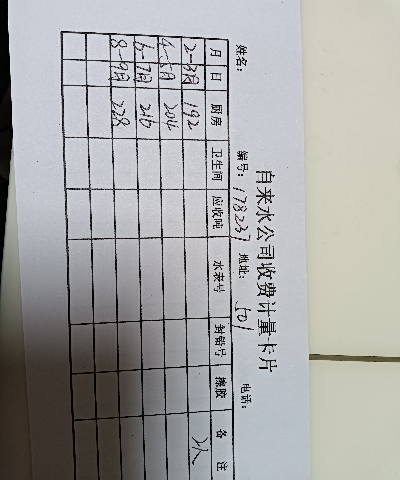 自来水公司收费计量卡片
姓名: 编号: 178237 地址: 501 电话:
月 日 厨房 卫生间 应收吨 水表号 封铅号 换胶 备注
2-3月 192 2人
4-5月 204
6-7月 216
8-9月 228